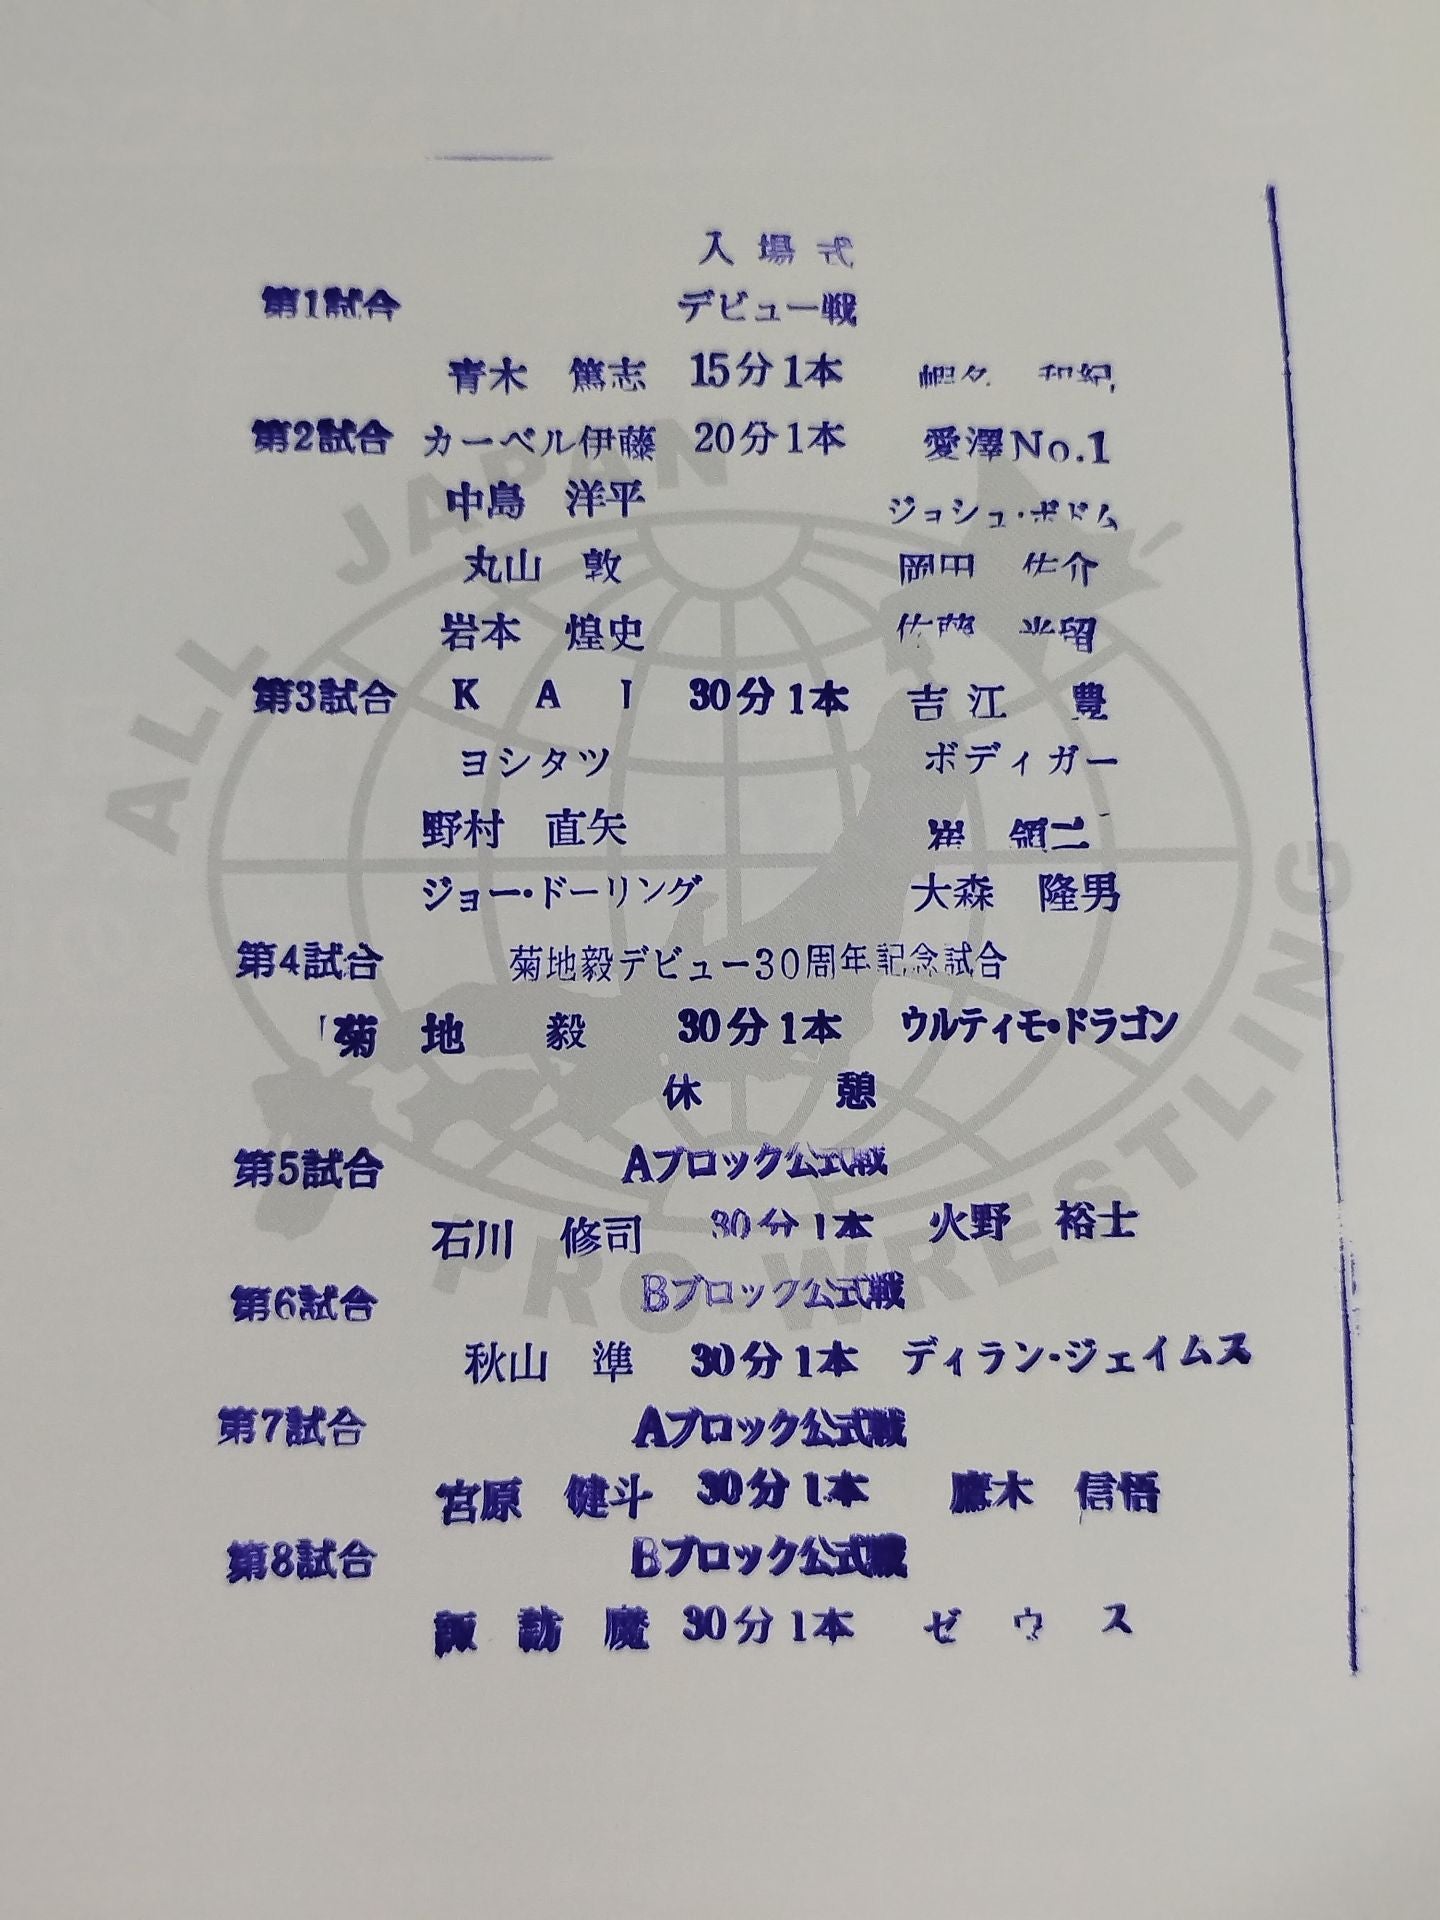 入場式
第1試合 デビュー戦
青木 篤志 15分1本
第2試合 カーベル伊藤 20分1本 愛澤No.1
中島 洋平 ジョシュ・ボドム
丸山 敦 岡田 佑介
岩本 煌史 佐藤 光留
第3試合 K A I 30分1本 吉江 豊
ヨシタツ ボディガー
野村 直矢 崔 領二
ジョー・ドーリング 大森 隆男
第4試合 菊地毅デビュー30周年記念試合
菊地 毅 30分1本 ウルティモ・ドラゴン
休 憩
第5試合 Aブロック公式戦
石川 修司 30分1本 火野 裕士
第6試合 Bブロック公式戦
秋山 準 30分1本 ディラン・ジェイムス
第7試合 Aブロック公式戦
宮原 健斗 30分1本 鷹木 信悟
第8試合 Bブロック公式戦
諏訪魔 30分1本 ゼウス
ALL JAPAN
PRO WRESTLING